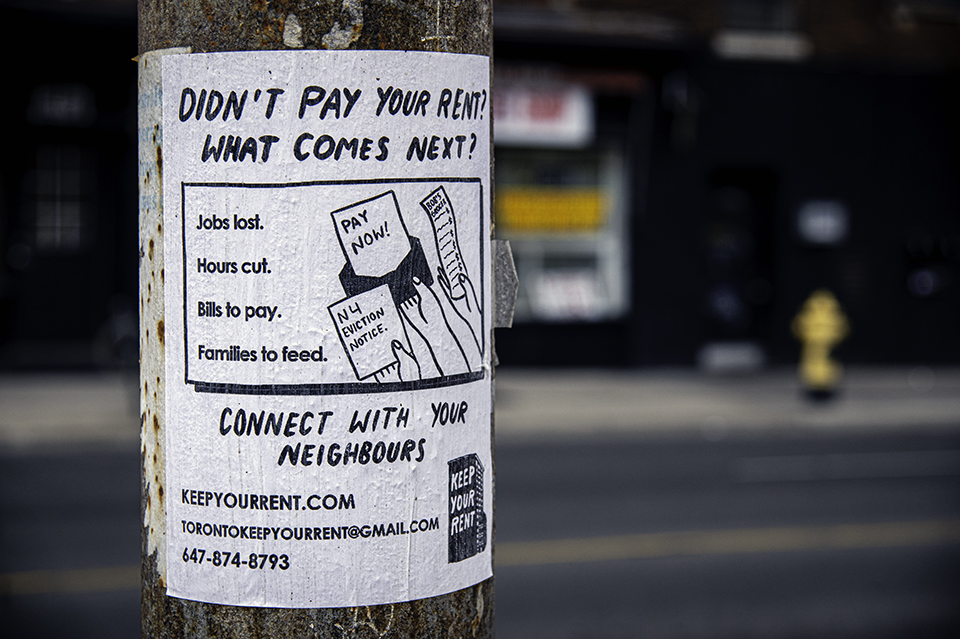 DIDN'T PAY YOUR RENT?
WHAT COMES NEXT?
Jobs lost.
Hours cut.
Bills to pay.
Families to feed.
PAY
NOW!
BOB'S
N4
EVICTION
NOTICE.
CONNECT WITH YOUR
NEIGHBOURS
KEEPYOURRENT.COM
TORONTOKEEPYOURRENT@GMAIL.COM
647-874-8793
KEEP
YOUR
RENT